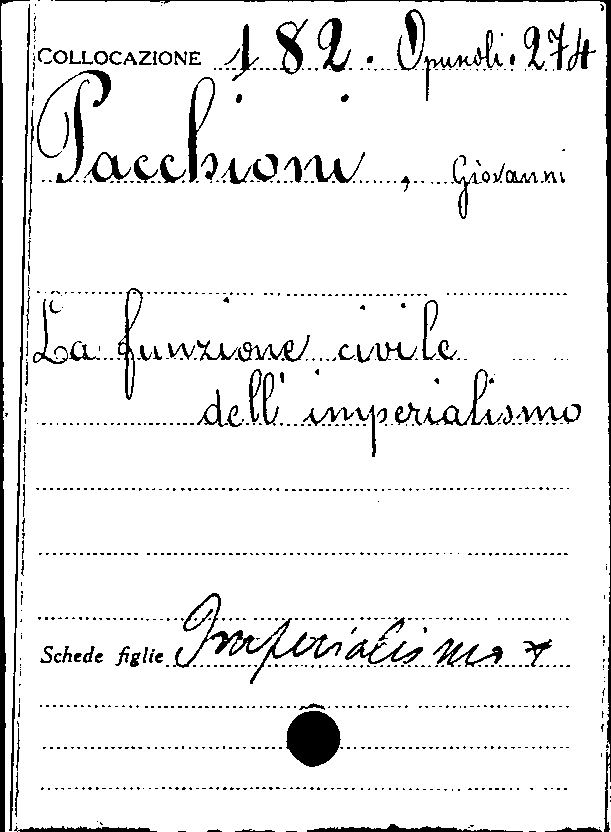 COLLOCAZIONE 182. Opusoli. 274
Pacchioni, Giovanni
La funzione civile
dell' imperialismo
Schede figlie Imperialismo